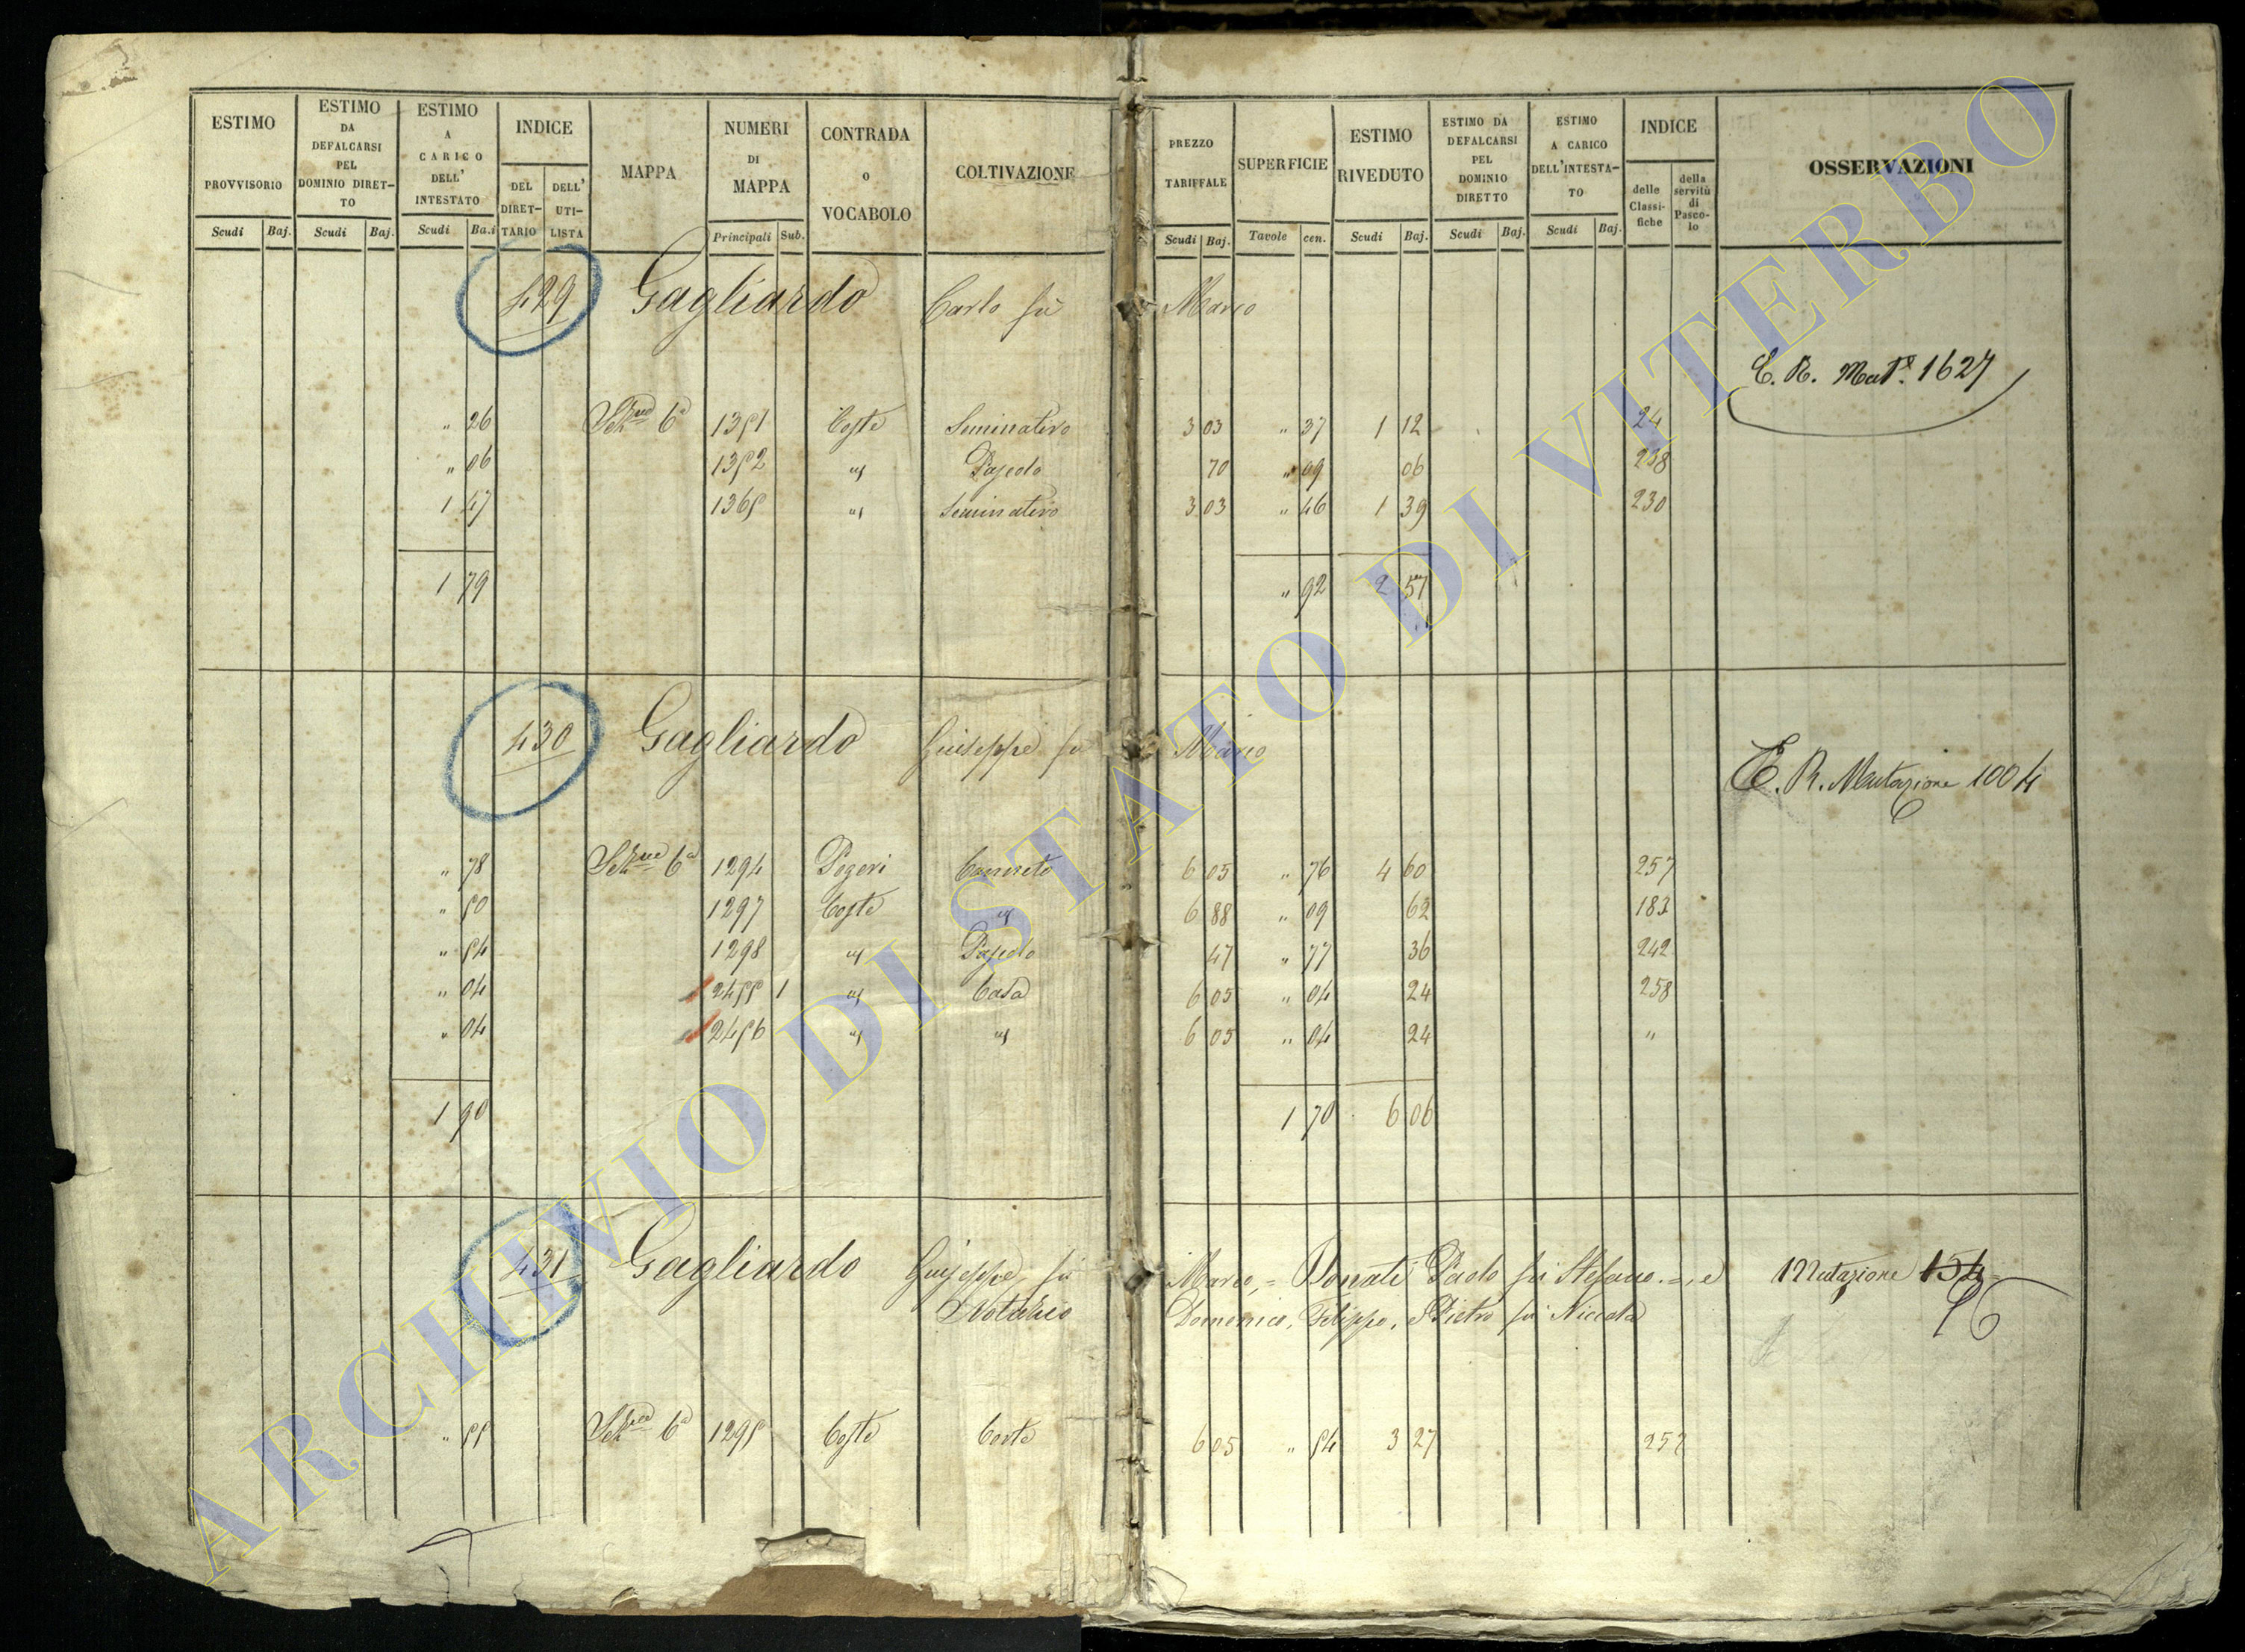 ESTIMO PROVVISORIO Scudi Baj.
ESTIMO DA DEFALCARSI PEL DOMINIO DIRET-TO Scudi Baj.
ESTIMO A CARICO DELL' INTESTATO Scudi Ba.i
INDICE DEL DIRET-TARIO DELL' UTI-LISTA
MAPPA
NUMERI DI MAPPA Principali Sub.
CONTRADA O VOCABOLO
COLTIVAZIONE
PREZZO TARIFFALE Scudi Baj.
SUPERFICIE Tavole cen.
ESTIMO RIVEDUTO Scudi Baj.
ESTIMO DA DEFALCARSI PEL DOMINIO DIRETTO Scudi Baj.
ESTIMO A CARICO DELL'INTESTA-TO Scudi Baj.
INDICE delle Classi-fiche della servitù di Pasco-lo
OSSERVAZIONI
429 Gagliardo Carlo fu Marco
E. R. Mut.e 1627
" 26 6a 1351 Coste Seminativo 3 03 " 37 1 12 24
" 06 1352 " Pascolo 70 " 09 06 238
1 47 1365 " Seminativo 3 03 " 46 1 39 230
1 79 " 92 2 57
430 Gagliardo Giuseppe fu Marco
E. R. Mutazione 1004
" 78 6a 1294 Pogeri Canneto 6 05 " 76 4 60 257
" 50 1297 Coste " 6 88 " 09 62 183
" 54 1298 " Pascolo 47 " 77 36 242
" 04 2455 1 " Casa 6 05 " 04 24 258
" 04 2456 " " 6 05 " 04 24 "
1 90 1 70 6 06
431 Gagliardo Giuseppe fu Marco, = Donati Paolo fu Stefano =, e Mutazione 154
Notario Domenico, Filippo, Pietro fu Niccola 96
" 55 6a 1295 Coste 6 05 " 54 3 27 257
ARCHIVIO DI STATO DI VITERBO